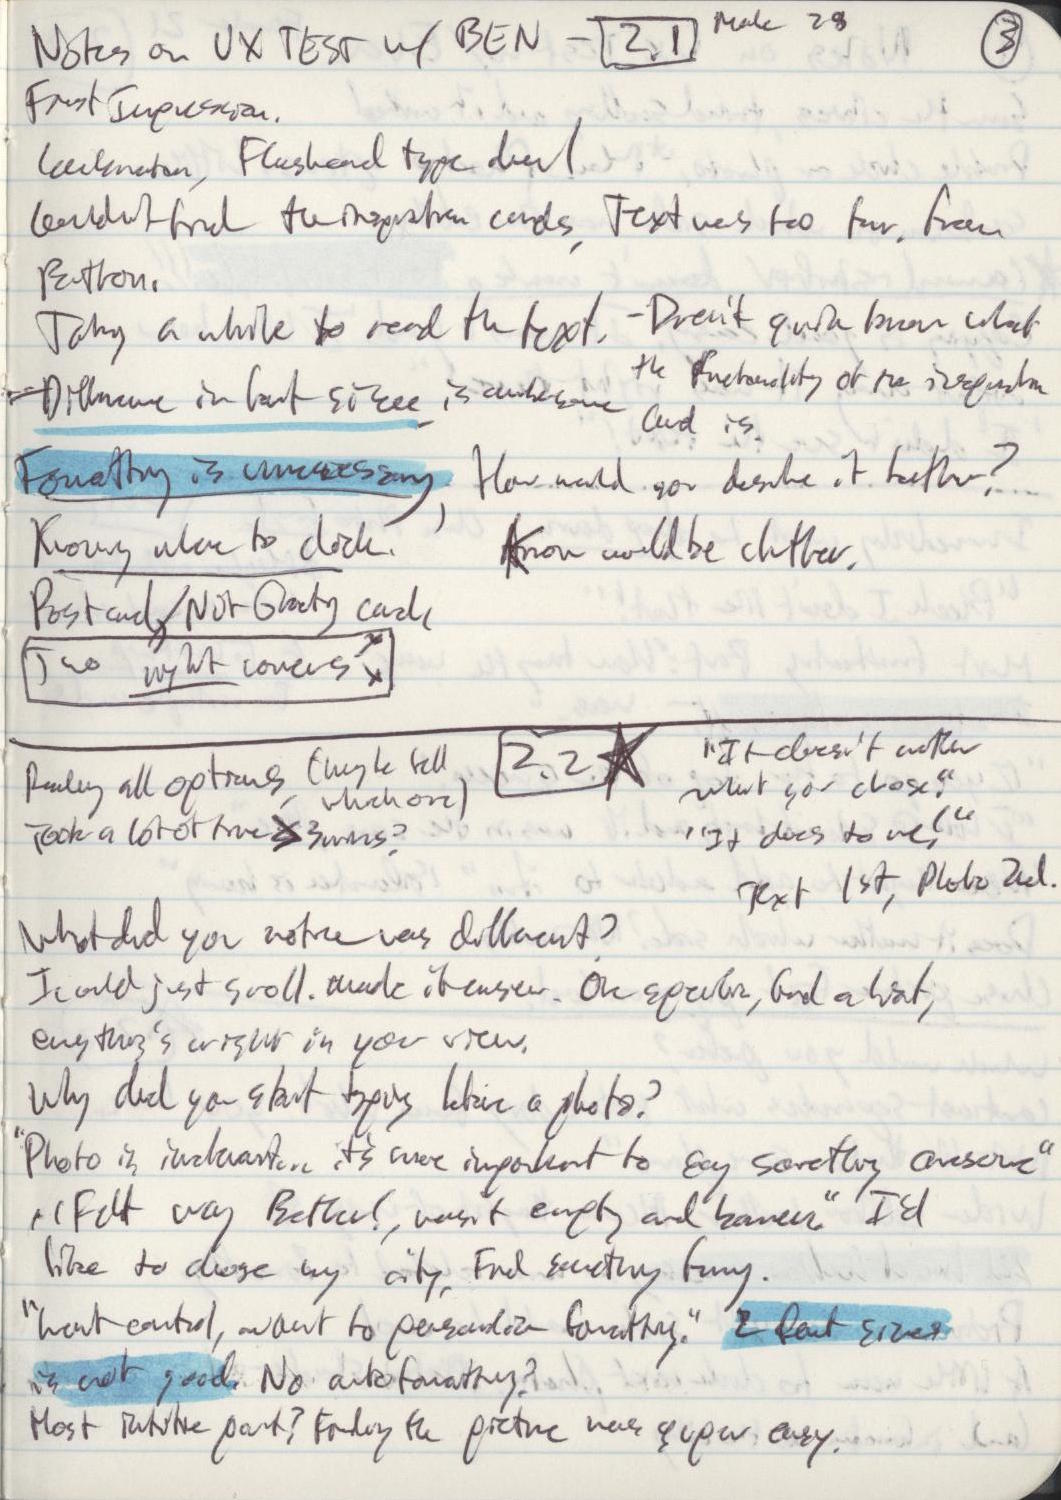 Notes on UX TEST w/ BEN - 2.1 Male 28
3
First Impression.
Flashcard type deal
Couldn't find the inspiration cards, Text was too far from
Button.
Taking a while to read the text. - Doesn't quite know what
the functionality of the inspiration
card is.
- Difference in font sizes is
Formatting is unnecessary, How would you describe it better?
Knowing where to click. Know would be clutter.
Postcard / Not Greeting card
Two right corners x x
2.2
Reading all options, (maybe tell
which one)
Took a lot of time > 3mins?
"It doesn't matter
what you chose."
"It does to me!"
Text 1st, Photo 2nd.
What did you notice was different?
I could just scroll. made it easier. One question, had a list,
everything's right in your view.
Why did you start typing before a photo?
"Photo is it's more important to say something awesome"
"Felt way Better!, wasn't empty and barren." I'd
like to choose my city, Find something funny.
"Want control, want to personalize formatting." 2 font sizes
is not good. No autoformatting?
Most intuitive part? Finding the picture was super easy.